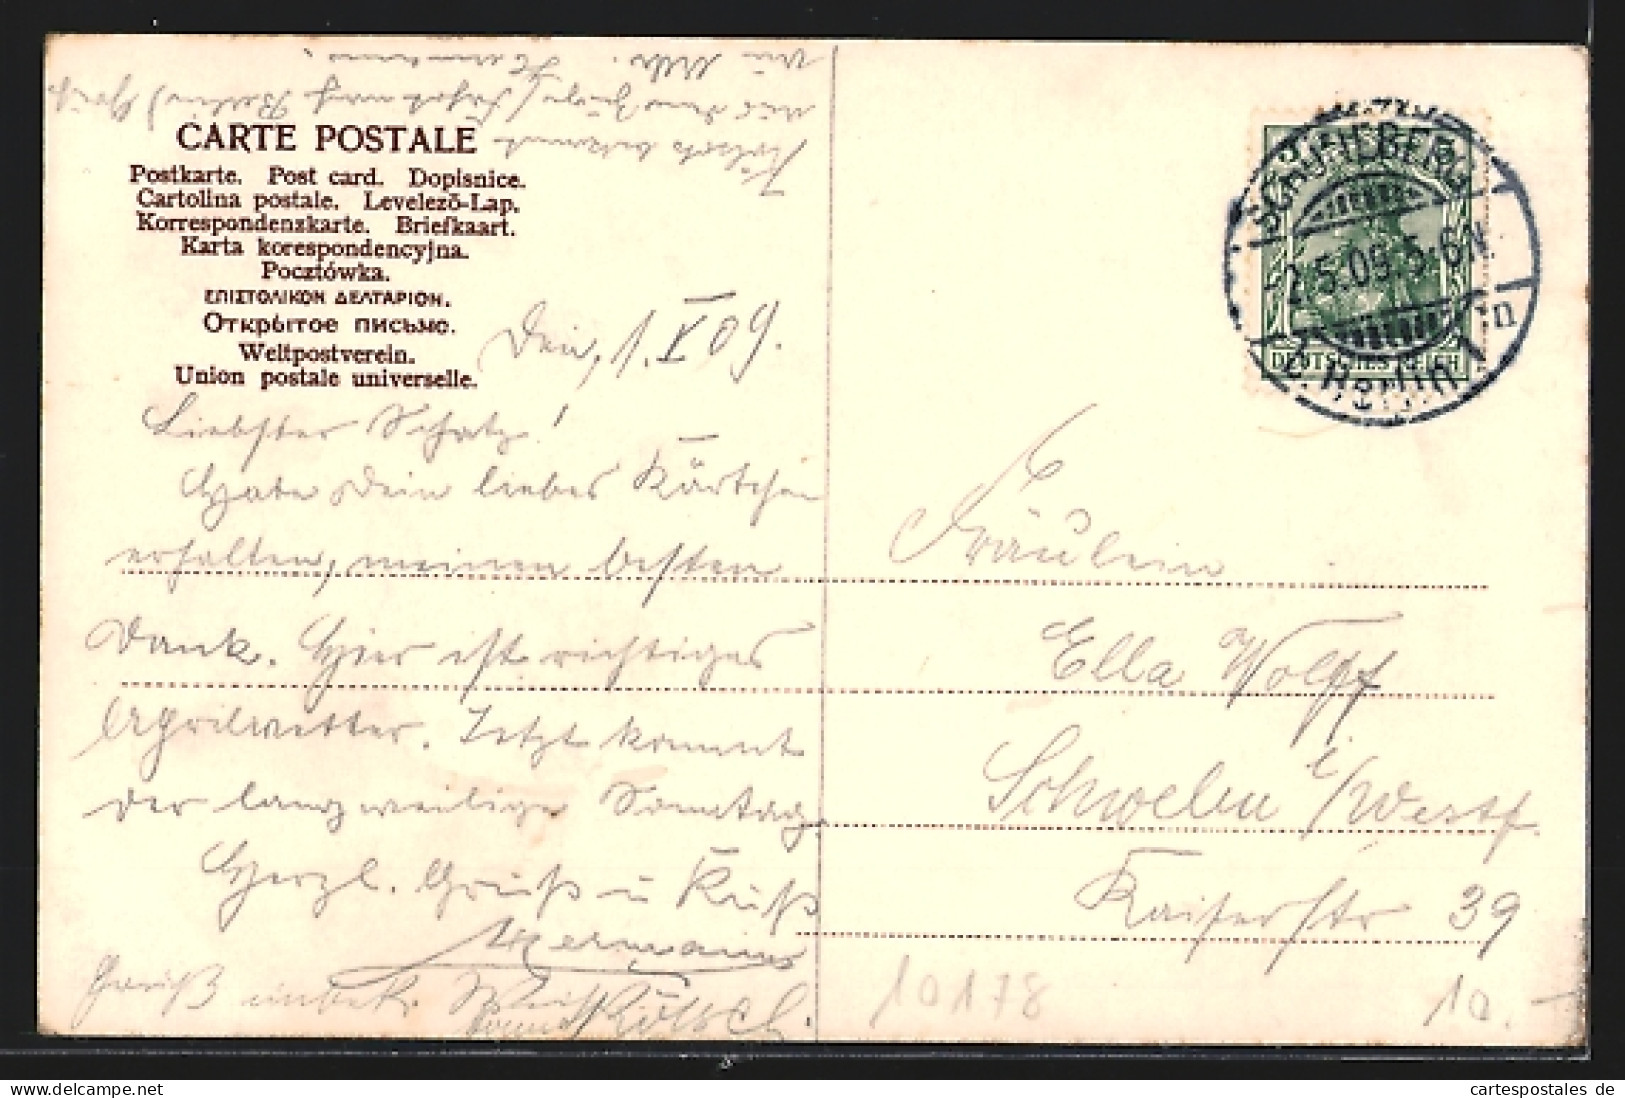 CARTE POSTALE
Postkarte. Post card. Dopisnice.
Cartolina postale. Levelező-Lap.
Korrespondenzkarte. Briefkaart.
Karta korespondencyjna.
Pocztówka.
ΕΠΙΣΤΟΛΙΚΟΝ ΔΕΛΤΑΡΙΟΝ.
Открытое письмо.
Weltpostverein.
Union postale universelle.
Den, 1. V 09.
Liebster Schatz!
Habe Dein liebes Kärtchen
erhalten, meinen besten
Dank. Hier ist richtiges
Aprilwetter. Jetzt kommt
der langweilige Sonntag
Herzl. Gruß u Kuß
Hermann
Gruß unbek.
SCHÖNEBERG
2.5.09.5-6N.
b. Berlin 1 n
DEUTSCHES REICH
Fräulein
Ella Wolff
Schwelm i/Westf.
Kaiserstr 39
10178
10.
cartespostales de